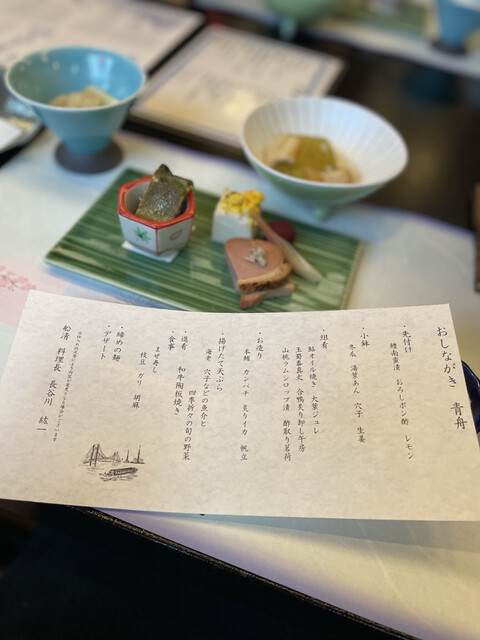 おしながき 青舟
・先付け
鰻南蛮漬 おろしポン酢 レモン
・小鉢
冬瓜 湯葉あん 穴子 生姜
・組肴
鮎オイル焼き 大葉ジュレ
玉蜀黍真丈 合鴨炙り卸し牛蒡
山桃ラムシロップ漬 酢取り茗荷
・お造り
本鮪 カンパチ 炙りイカ 帆立
・揚げたて天ぷら
海老 穴子などの魚介と
四季折々の旬の野菜
・進肴 和牛陶板焼き
・食事
まぜ寿し
枝豆 ガリ 胡麻
・締めの麺
・デザート
船清 料理長 長谷川 紘一